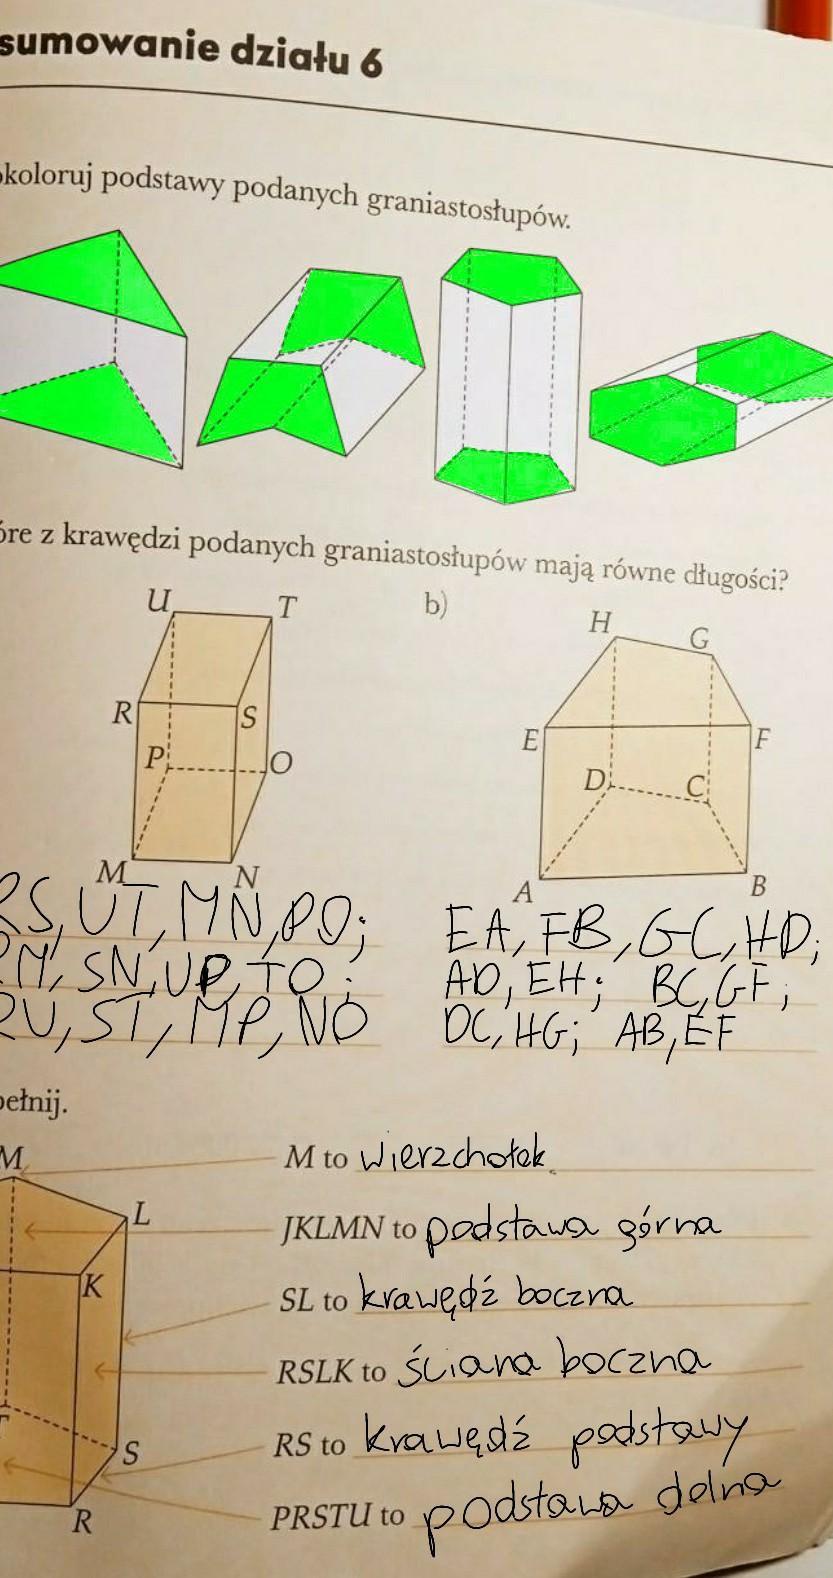 sumowanie działu 6
okoloruj podstawy podanych graniastosłupów.
óre z krawędzi podanych graniastosłupów mają równe długości?
b)
U T
R S
P O
M N
H G
E F
D C
A B
RS, UT, MN, PO;
RM, SN, UP, TO;
RU, ST, MP, NO
EA, FB, GC, HD;
AD, EH; BC, GF;
DC, HG; AB, EF
pełnij.
M
L
K
T
S
R
M to wierzchołek
JKLMN to podstawa górna
SL to krawędź boczna
RSLK to ściana boczna
RS to krawędź podstawy
PRSTU to podstawa dolna